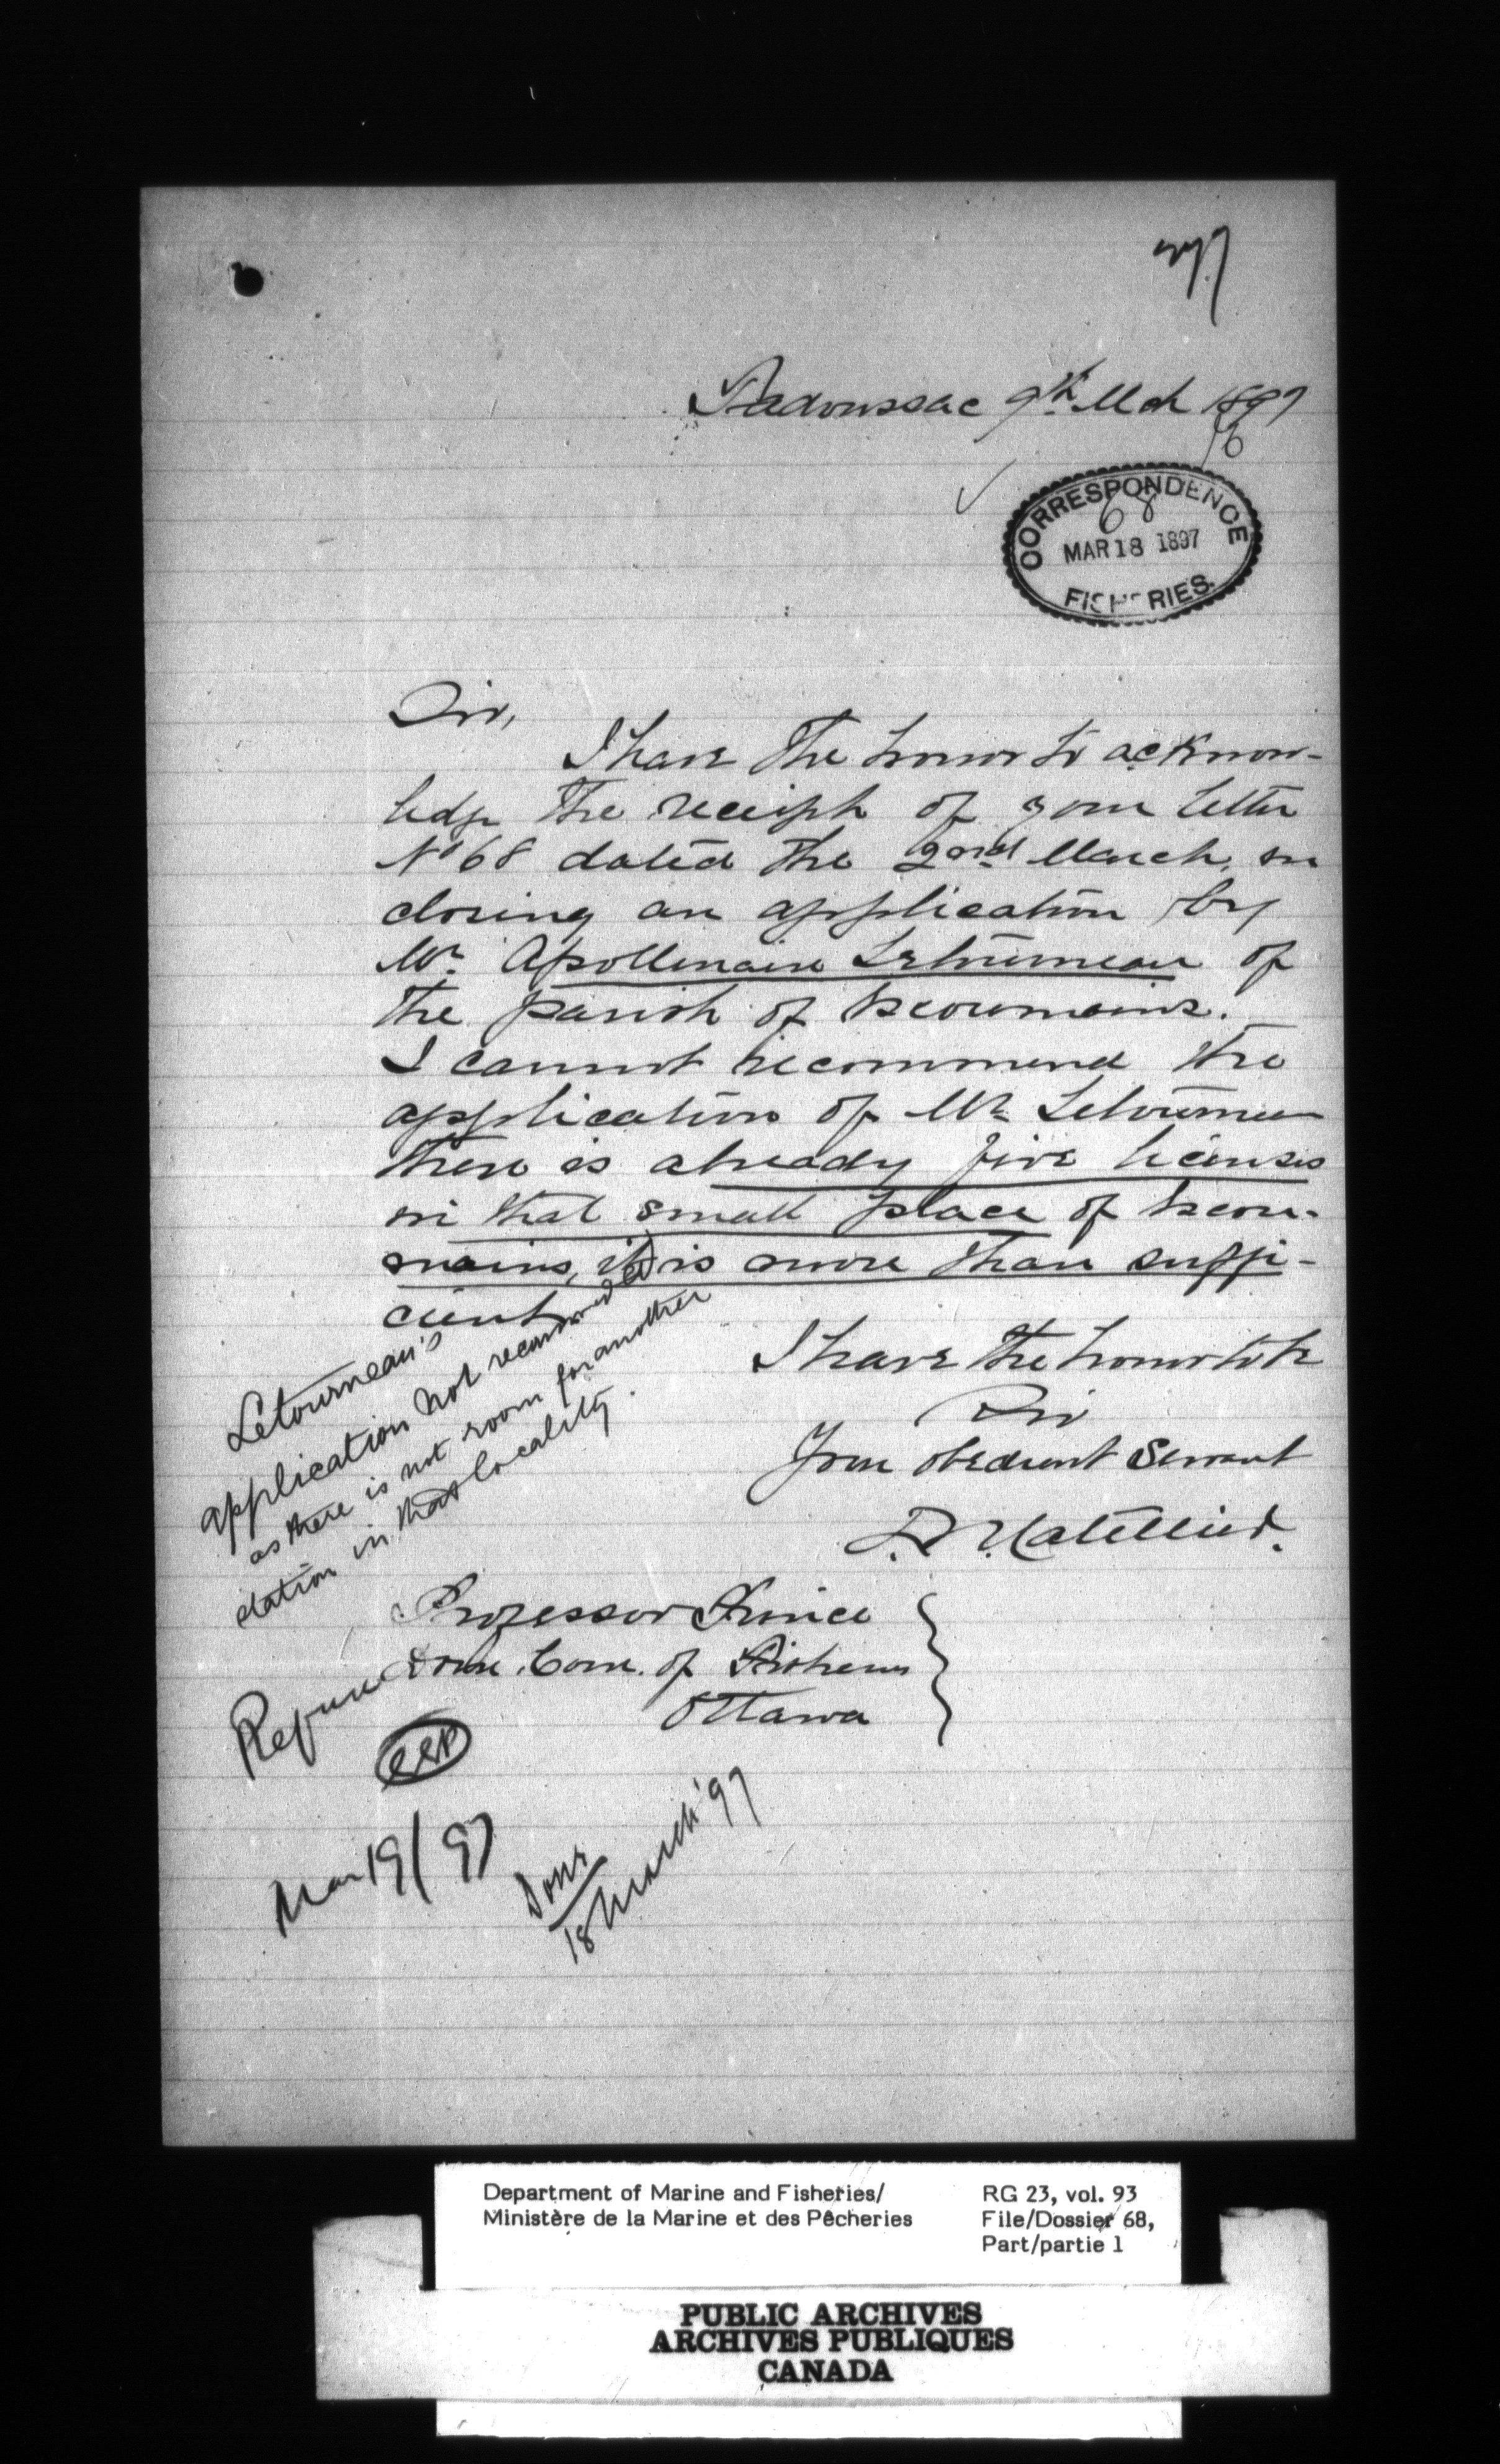 Tadoussac 9th Mch 1897
16
CORRESPONDENCE
68
MAR 18 1897
FISHERIES.
Sir,
I have the honor to acknow-
ledge the receipt of your letter
No 68 dated the 2nd March, en
closing an application by
Mr. Apollinaire Letourneau of
the parish of Escoumains.
I cannot recommend the
application of Mr. Letourneau
there is already five licenses
in that small place of Escou-
mains, it is more than suffi-
cient.
I have the honor to be
Sir
Your obedient Servant
Letourneau's
application not recommended
as there is not room for another
station in that locality.
Professor Prince
Dom. Com. of Fisheries
Ottawa
Refuse
EEP
Mar 19/97
Done
18 March '97
Department of Marine and Fisheries/
Ministère de la Marine et des Pêcheries
RG 23, vol. 93
File/Dossier 68,
Part/partie 1
PUBLIC ARCHIVES
ARCHIVES PUBLIQUES
CANADA